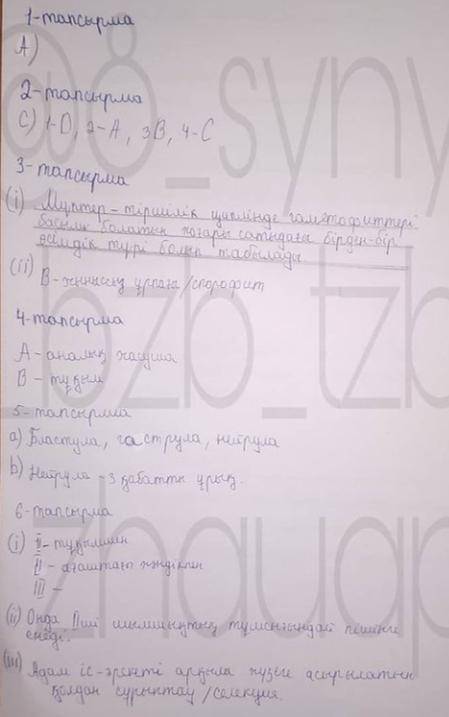 1-тапсырма
А)
2-тапсырма
С) 1-D, 2-A, 3B, 4-C
3-тапсырма
(i) Мүктер - тіршілік циклінде гаметофиттері
басым болатын жоғары сатыдағы бірден-бір
өсімдік түрі болып табылады
(ii) В - жыныссыз ұрпағы/спорофит
4-тапсырма
А - аналық жасуша
В - тұқым
5-тапсырма
а) Бластула, гаструла, нейрула
b) Нейрула - 3 қабатты ұрық.
6-тапсырма
(i) I - тұқыммен
II - ағаштағы жәндікпен
III -
(ii) Онда тұмсығындай пешенге
енеді.
(iii) Адам іс-әрекеті арқылы жүзеге асырылатын
қолдан сұрыптау/селекция.
@8_syny
_bzb_tzb
zhauap